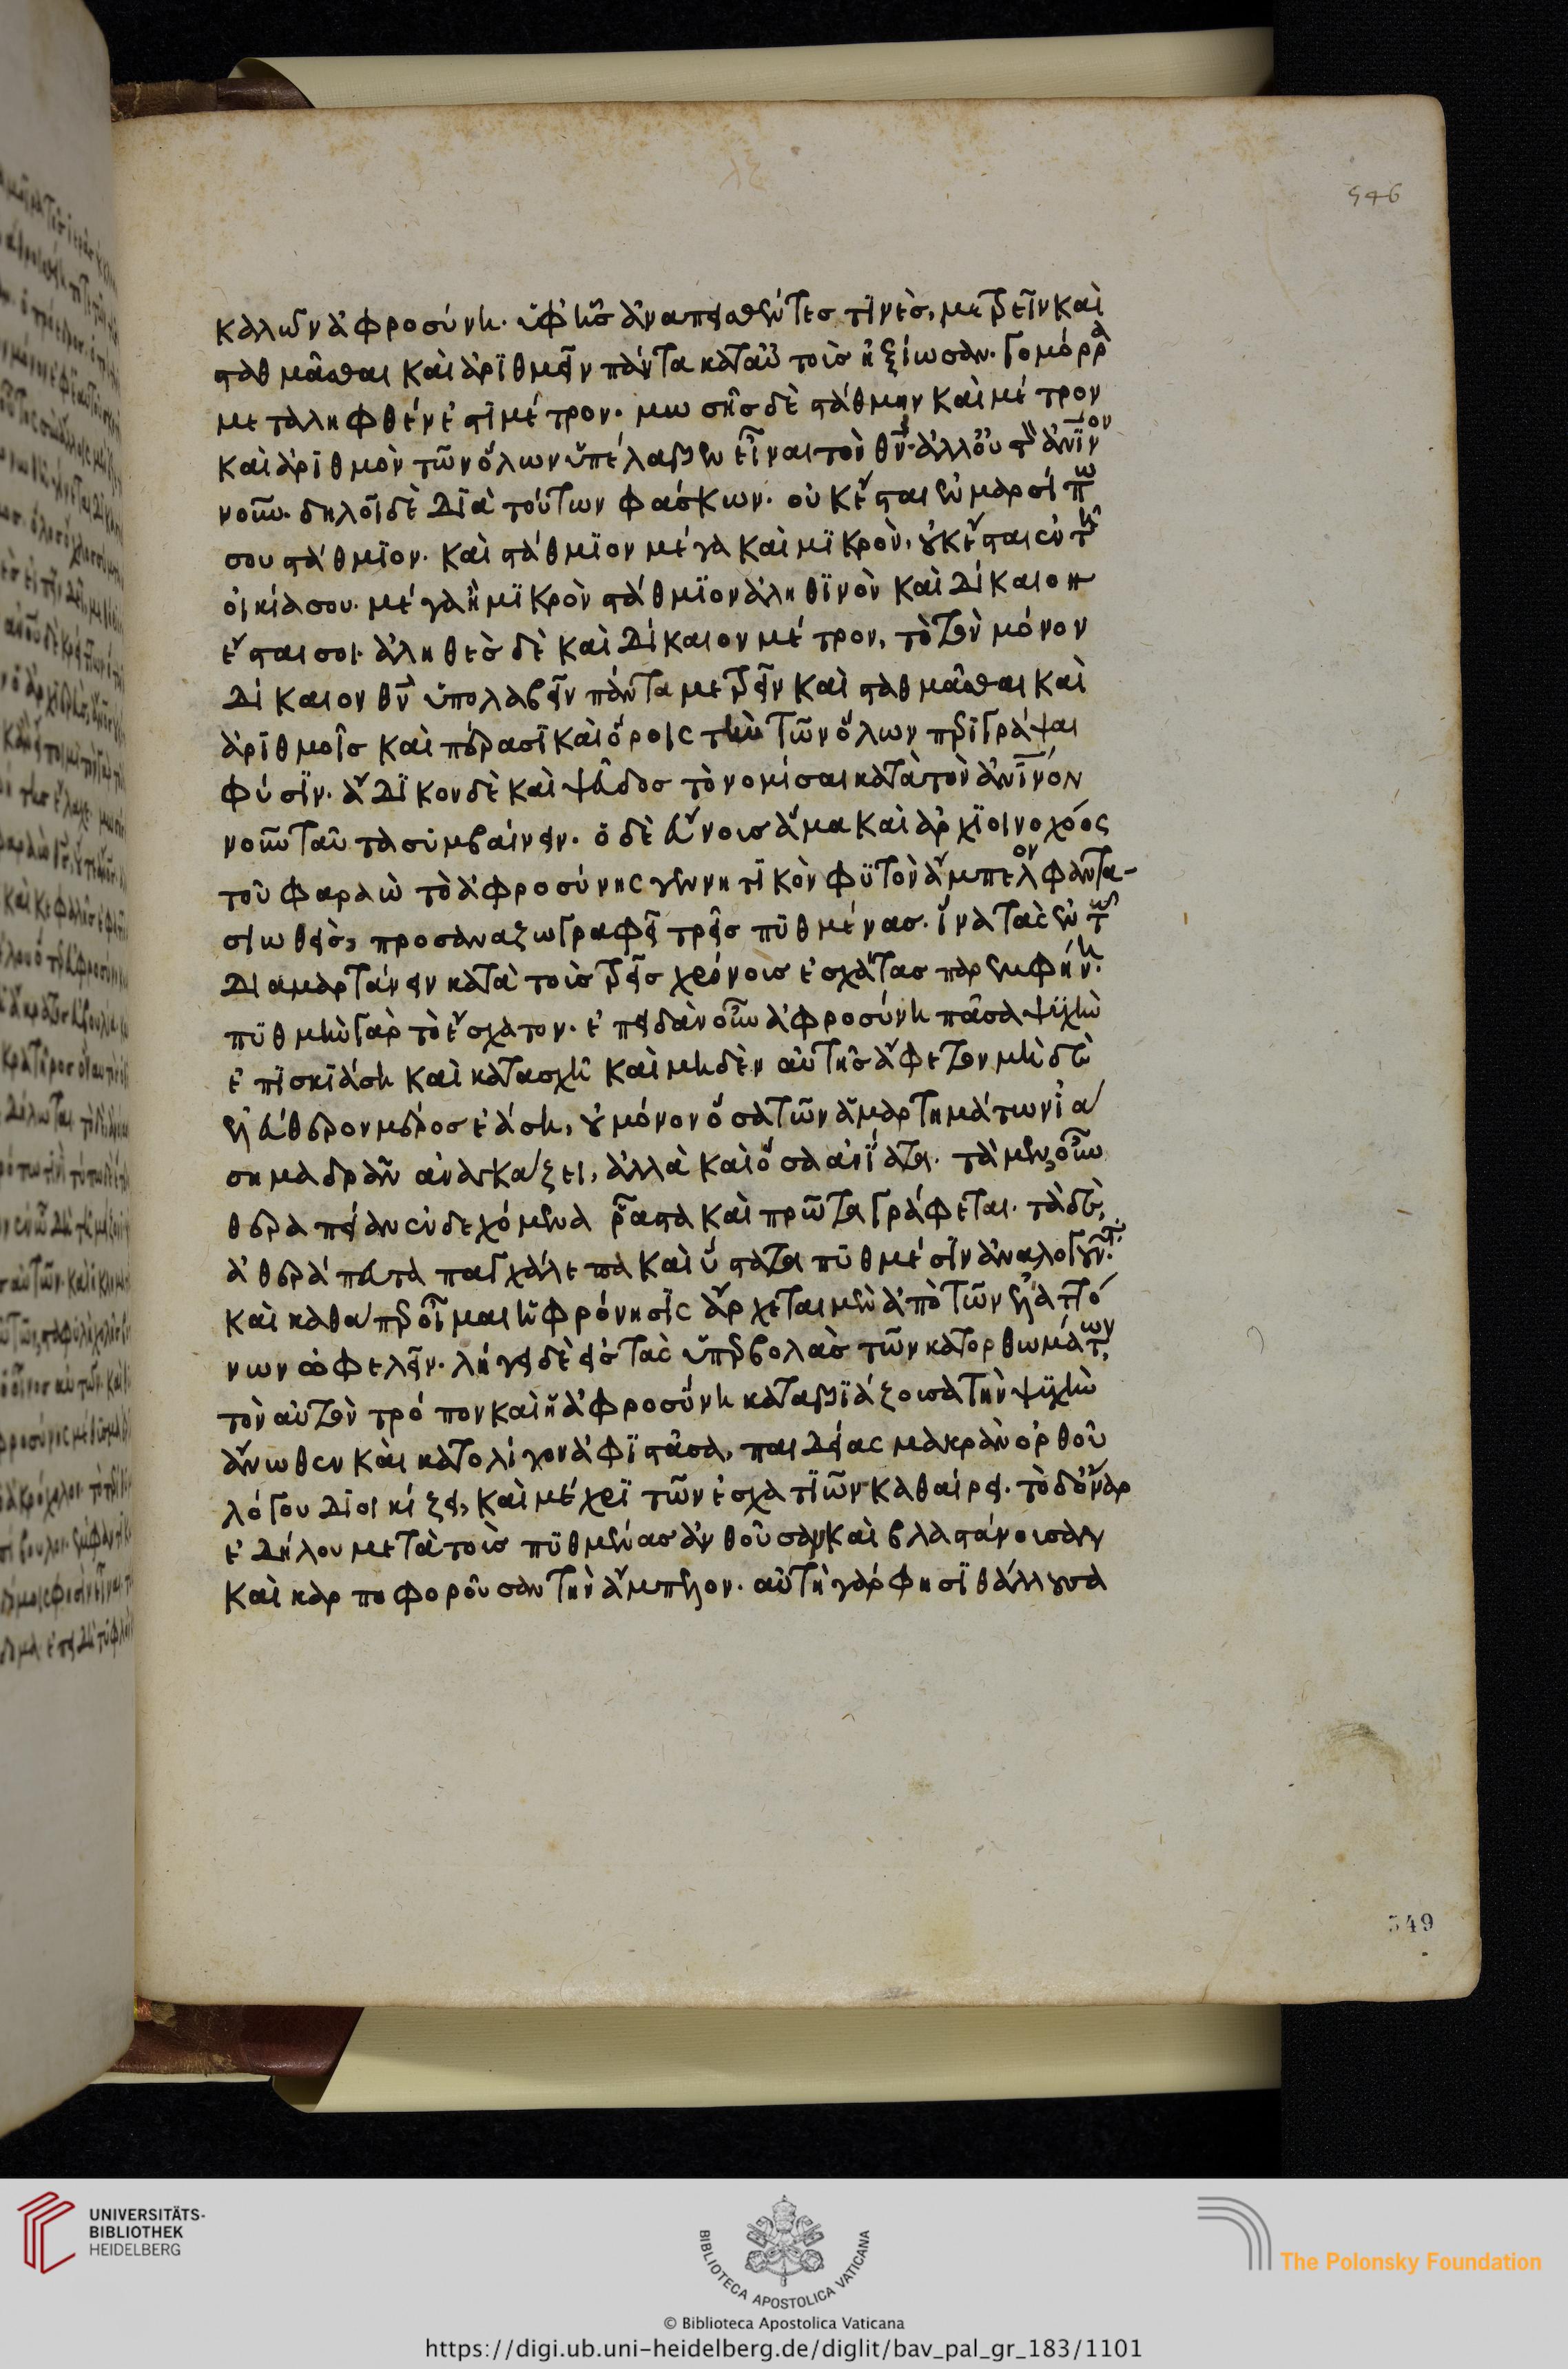 καλῶν ἀφροσύνη. ὑφ' ἧς ἀναπεισθέντες τινὲς, μετρεῖν καὶ
σταθμᾶσθαι καὶ ἀριθμεῖν πάντα κατ' αὐτοὺς ἠξίωσαν. γόμορρα
μεταληφθέν ἐστι μέτρον. μωσῆς δὲ στάθμην καὶ μέτρον
καὶ ἀριθμὸν τῶν ὅλων ὑπέλαβεν εἶναι τὸν θν̅. ἀλλ' οὐ τὸν ἀνι̅νον
νοῦν. δηλοῖ δὲ διὰ τούτων φάσκων. οὐκ ἔσται ἐν μαρσίπω
σου στάθμιον. καὶ στάθμιον μέγα καὶ μικρὸν, οὐκ ἔσται ἐν τῆ
οἰκία σου. μέγα ἢ μικρὸν στάθμιον ἀληθινὸν καὶ δίκαιον
ἔσται σοι. ἀληθὲς δὲ καὶ δίκαιον μέτρον, τὸ τὸν μόνον
δίκαιον θν̅ ὑπολαβεῖν πάντα μετρεῖν καὶ σταθμᾶσθαι καὶ
ἀριθμοῖς καὶ πέρασι καὶ ὅροις τὴν τῶν ὅλων περιγράψαι
φύσιν. ἄδικον δὲ καὶ ψεῦδος τὸ νομίσαι κατὰ τὸν ἀνι̅νον
νοῦν ταῦτα συμβαίνειν. ὁ δὲ εὔνους ἅμα καὶ ἀρχιοινοχόος
τοῦ φαραὼ τὸ ἀφροσύνης γεννητικὸν φυτὸν ἄμπελον φαντα-
σιωθεὶς, προσαναζωγραφεῖ τρεῖς πυθμένας. ἵνα τὰς ἐν τῶ
διαμαρτάνειν κατὰ τοὺς τρεῖς χρόνους ἐσχάτας παρεμφήνη.
πυθμὴν γὰρ τὸ ἔσχατον. ἐπειδὰν οὖν ἀφροσύνη πᾶσα ψυχὴν
ἐπισκιάση καὶ κατασχῆ καὶ μηδὲν αὐτῆς ἄφετον μηδὲ
ἐλεύθερον μέρος ἐάση, οὐ μόνον ὅσα τῶν ἁμαρτημάτων ἰά
σημα δρᾶν ἀναγκάζει, ἀλλὰ καὶ ὅσα ἀνίατα. τὰ μὲν οὖν
θεραπείαν ἐνδεχόμενα ῥᾶστα καὶ πρῶτα γράφεται. τὰ δὲ,
ἀθεράπευτα παγχάλεπα καὶ ὕστατα πυθμέσιν ἀναλογοῦντα.
καὶ καθάπερ οἶμαι ἡ φρόνησις ἄρχεται μὲν ἀπὸ τῶν ἐλαττό
νων ὠφελεῖν. λήγει δὲ εἰς τὰς ὑπερβολὰς τῶν κατορθωμάτων,
τὸν αὐτὸν τρόπον καὶ ἡ ἀφροσύνη καταβιάζουσα τὴν ψυχὴν
ἄνωθεν καὶ κατολίγον ἀφιστᾶσα, παιδείας μακρὰν ὀρθοῦ
λόγου διοικίζει, καὶ μέχρι τῶν ἐσχατιῶν καθαίρει. τὸ δ' ὄναρ
ἐδήλου μετὰ τοὺς πυθμένας ἀνθοῦσαν καὶ βλαστάνουσαν
καὶ καρποφοροῦσαν τὴν ἄμπελον. αὐτὴ γάρ φησι θάλλουσα
546
349
UNIVERSITÄTS-
BIBLIOTHEK
HEIDELBERG
BIBLIOTECA APOSTOLICA VATICANA
The Polonsky Foundation
© Biblioteca Apostolica Vaticana
https://digi.ub.uni-heidelberg.de/diglit/bav_pal_gr_183/1101